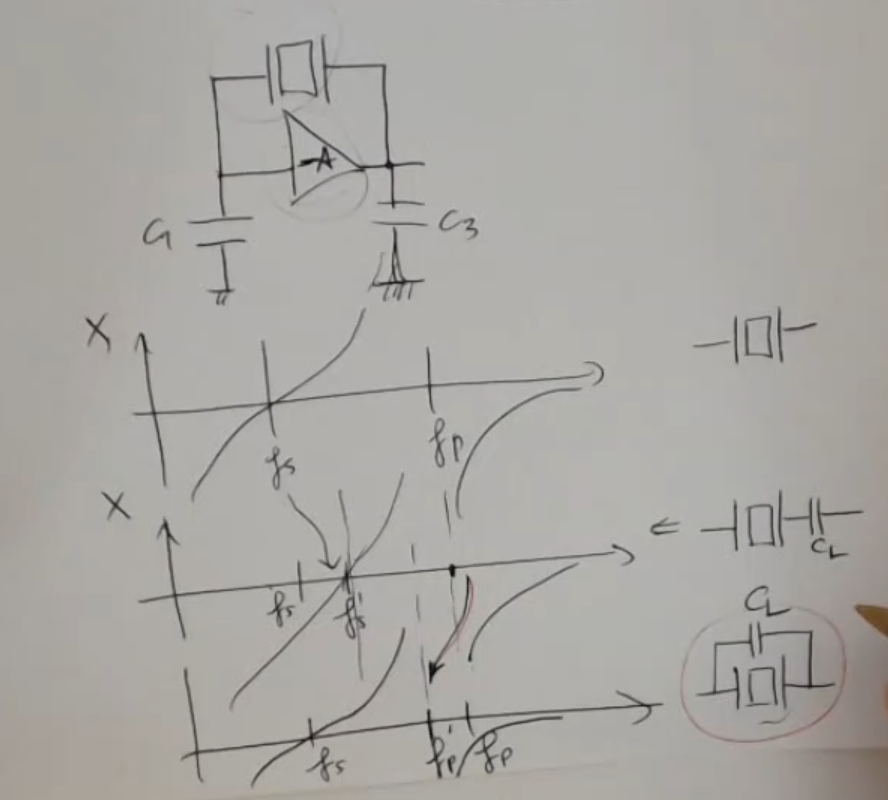 -A
C1 C3
X
fs fp
X
CL
fs fs'
CL
fs fp' fp